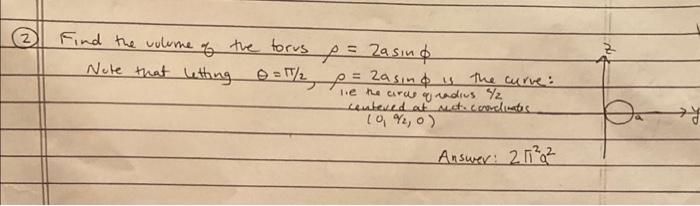 2 Find the volume of the torus ρ = 2a sin ϕ
Note that letting θ = π/2, ρ = 2a sin ϕ is the curve:
i.e the circle of radius a/2
centered at rect. coordinates
(0, a/2, 0)
Answer: 2π²a²
z
a
y